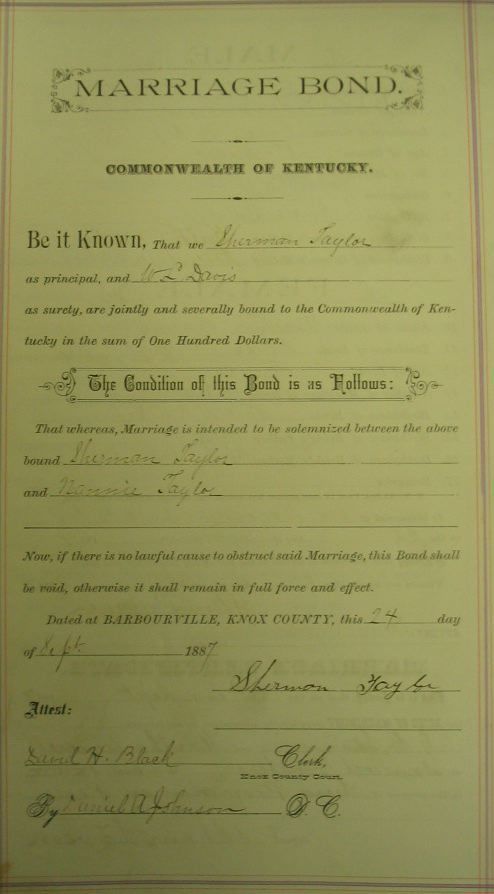 MARRIAGE BOND.
COMMONWEALTH OF KENTUCKY.
Be it Known, That we Sherman Taylor
as principal, and W L Davis
as surety, are jointly and severally bound to the Commonwealth of Ken-
tucky in the sum of One Hundred Dollars.
The Condition of this Bond is as Follows:
That whereas, Marriage is intended to be solemnized between the above
bound Sherman Taylor
and Nannie Taylor
Now, if there is no lawful cause to obstruct said Marriage, this Bond shall
be void, otherwise it shall remain in full force and effect.
Dated at BARBOURVILLE, KNOX COUNTY, this 24 day
of Sept. 1887
Sherman Taylor
Attest:
David H. Black Clerk,
Knox County Court.
By Daniel A Johnson D. C.